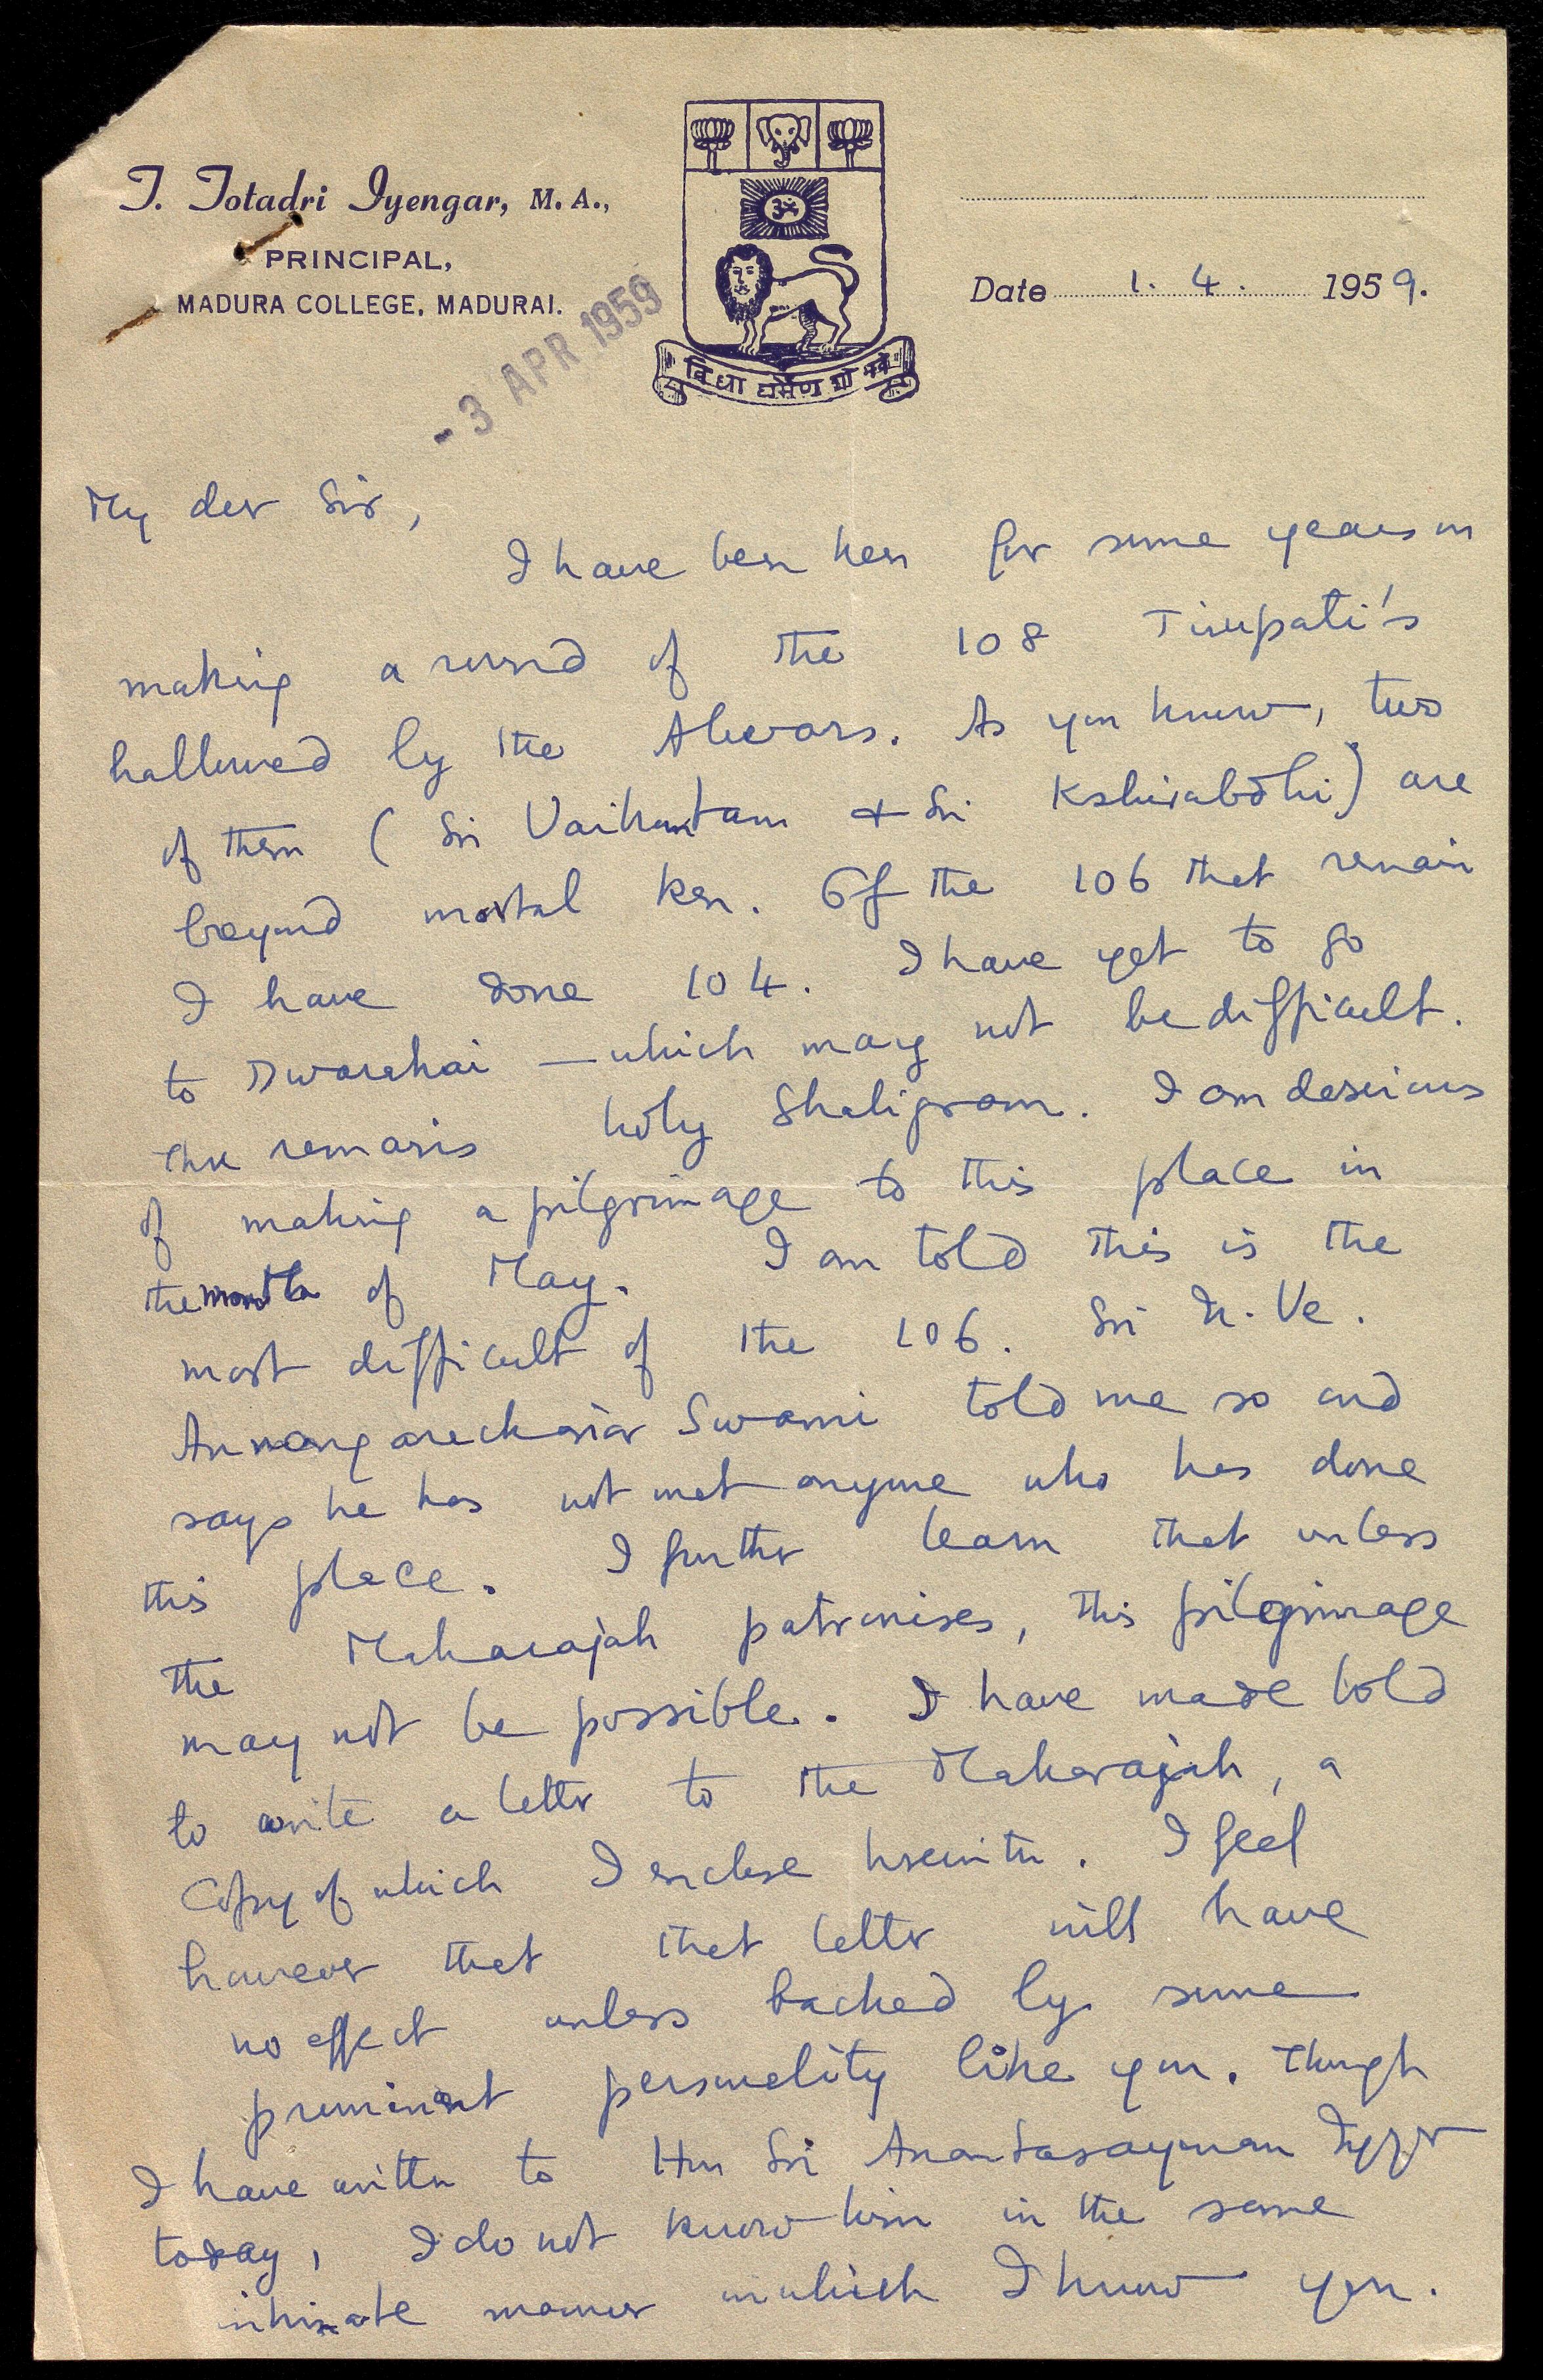 T. Totadri Iyengar, M. A.,
PRINCIPAL,
MADURA COLLEGE, MADURAI.
ॐ
विद्या धर्मेण शोभते
Date 1. 4. 1959.
- 3 APR 1959
My dear Sir,
I have been here for some years in
making a round of the 108 Tirupati's
hallowed by the Alwars. As you know, two
of them ( Sri Vaikuntam & Sri Kshirabdhi) are
beyond mortal ken. Of the 106 that remain
I have done 104. I have yet to go
to Dwarakai — which may not be difficult.
There remains holy Shaligram. I am desirous
of making a pilgrimage to this place in
the month of May. I am told this is the
most difficult of the 106. Sri
Annangarachariar Swami told me so and
says he has not met anyone who has done
this place. I further learn that unless
the Maharajah patronises, this pilgrimage
may not be possible. I have made bold
to write a letter to the Maharajah, a
Copy of which I enclose herewith. I feel
however that that letter will have
no effect unless backed by some
prominent personality like you. Though
I have written to Hon Sri Anantasayanam Iyyr
today, I do not know him in the same
intimate manner in which I know you.